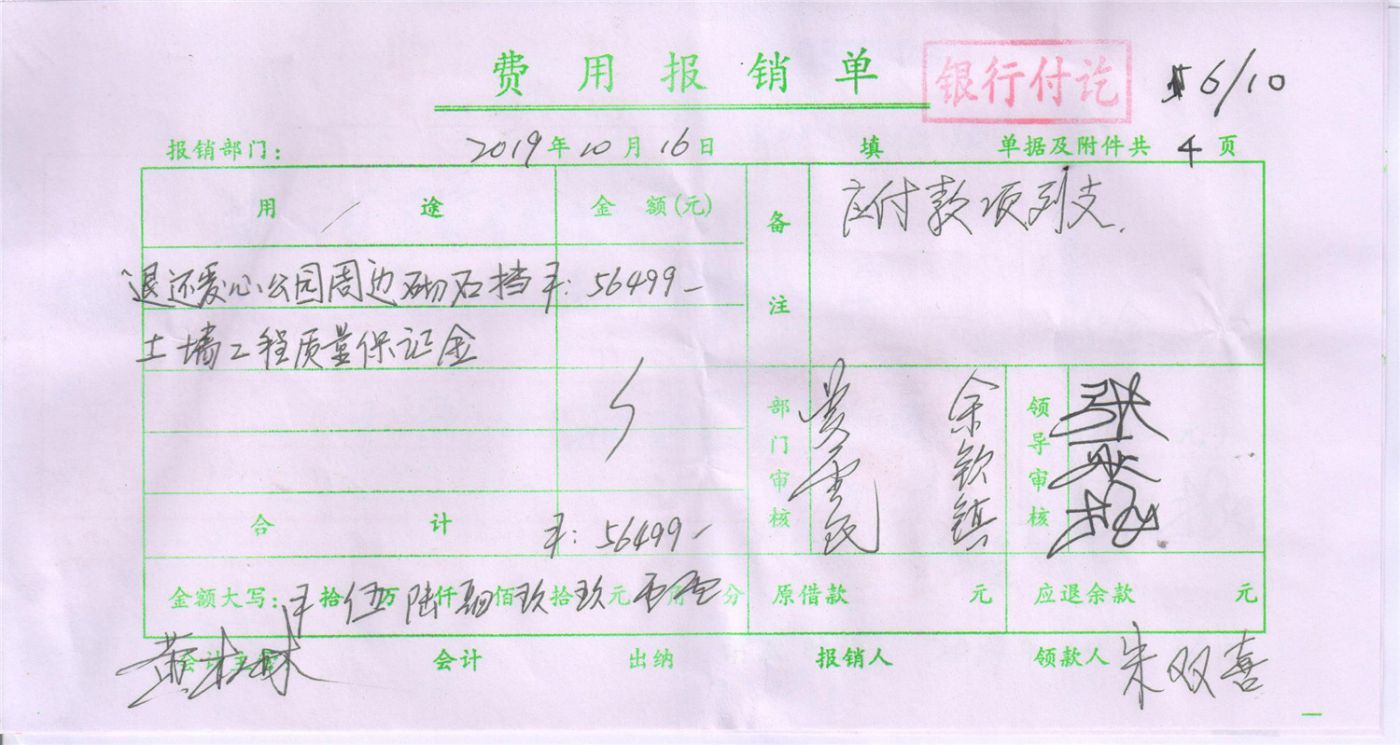 费用报销单 银行付讫 6/10
报销部门: 2019年10月16日 填 单据及附件共 4 页
用途 金额(元) 备注 应付款项列支.
退还爱心公园周边砌石挡 56499-
土墙工程质量保证金
部门审核 余钦镇 领导审核
合计 56499-
金额大写: 拾伍万陆仟肆佰玖拾玖元 角 分 原借款 元 应退余款 元
会计主管 会计 出纳 报销人 领款人 朱双喜